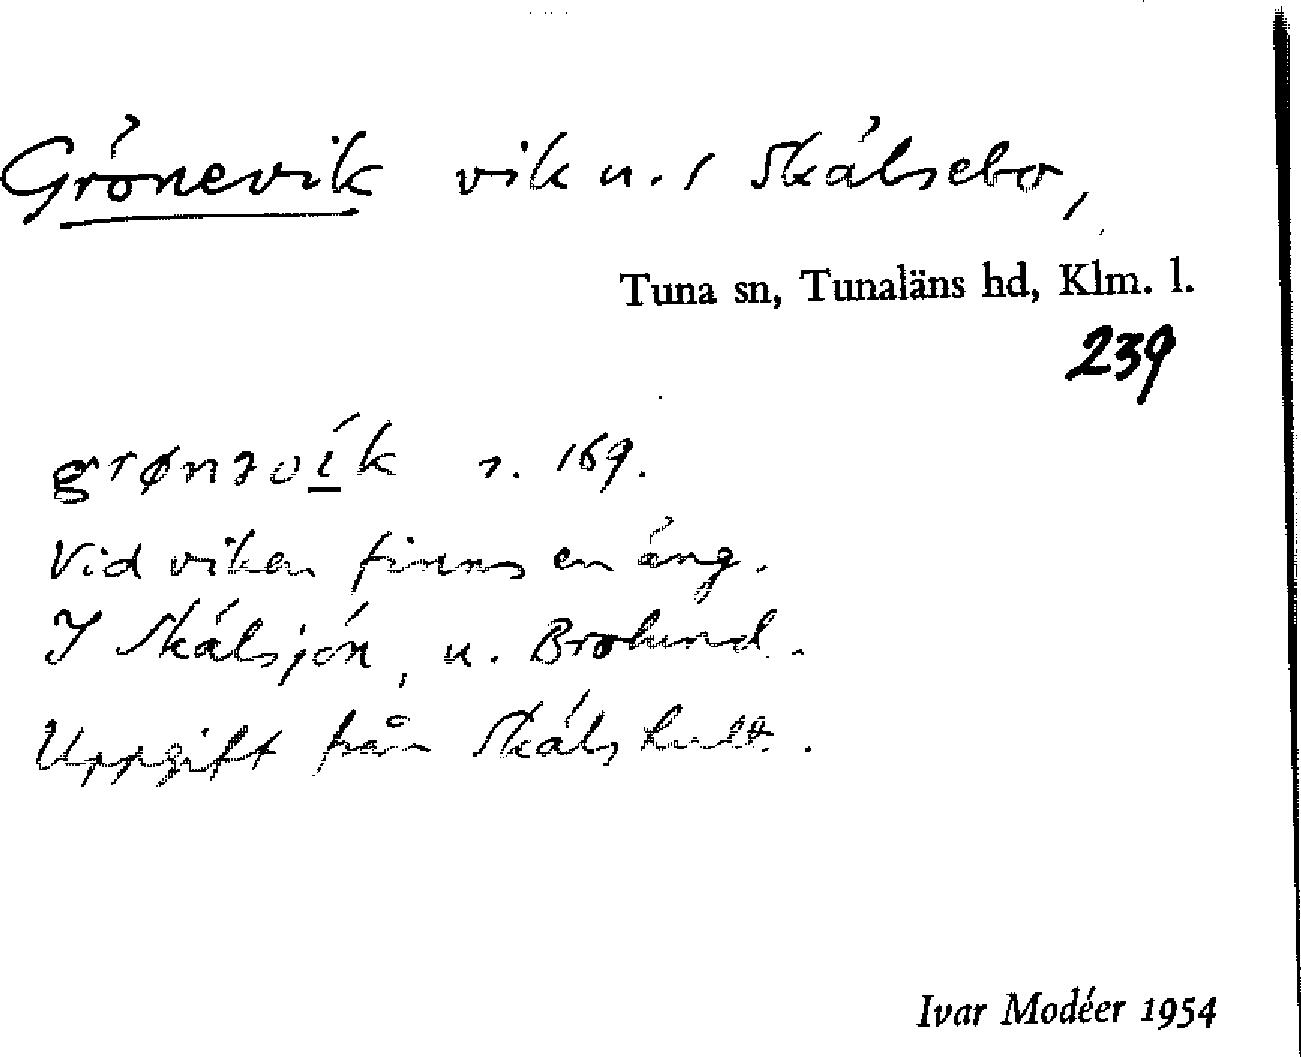 Grönevik vik u. / Skälsebo,
Tuna sn, Tunaläns hd, Klm. l.
239
grønɜvík s. 169.
Vid viken finns en äng.
I Skälsjön, u. Brolund.
Uppgift från Skälshult.
Ivar Modéer 1954